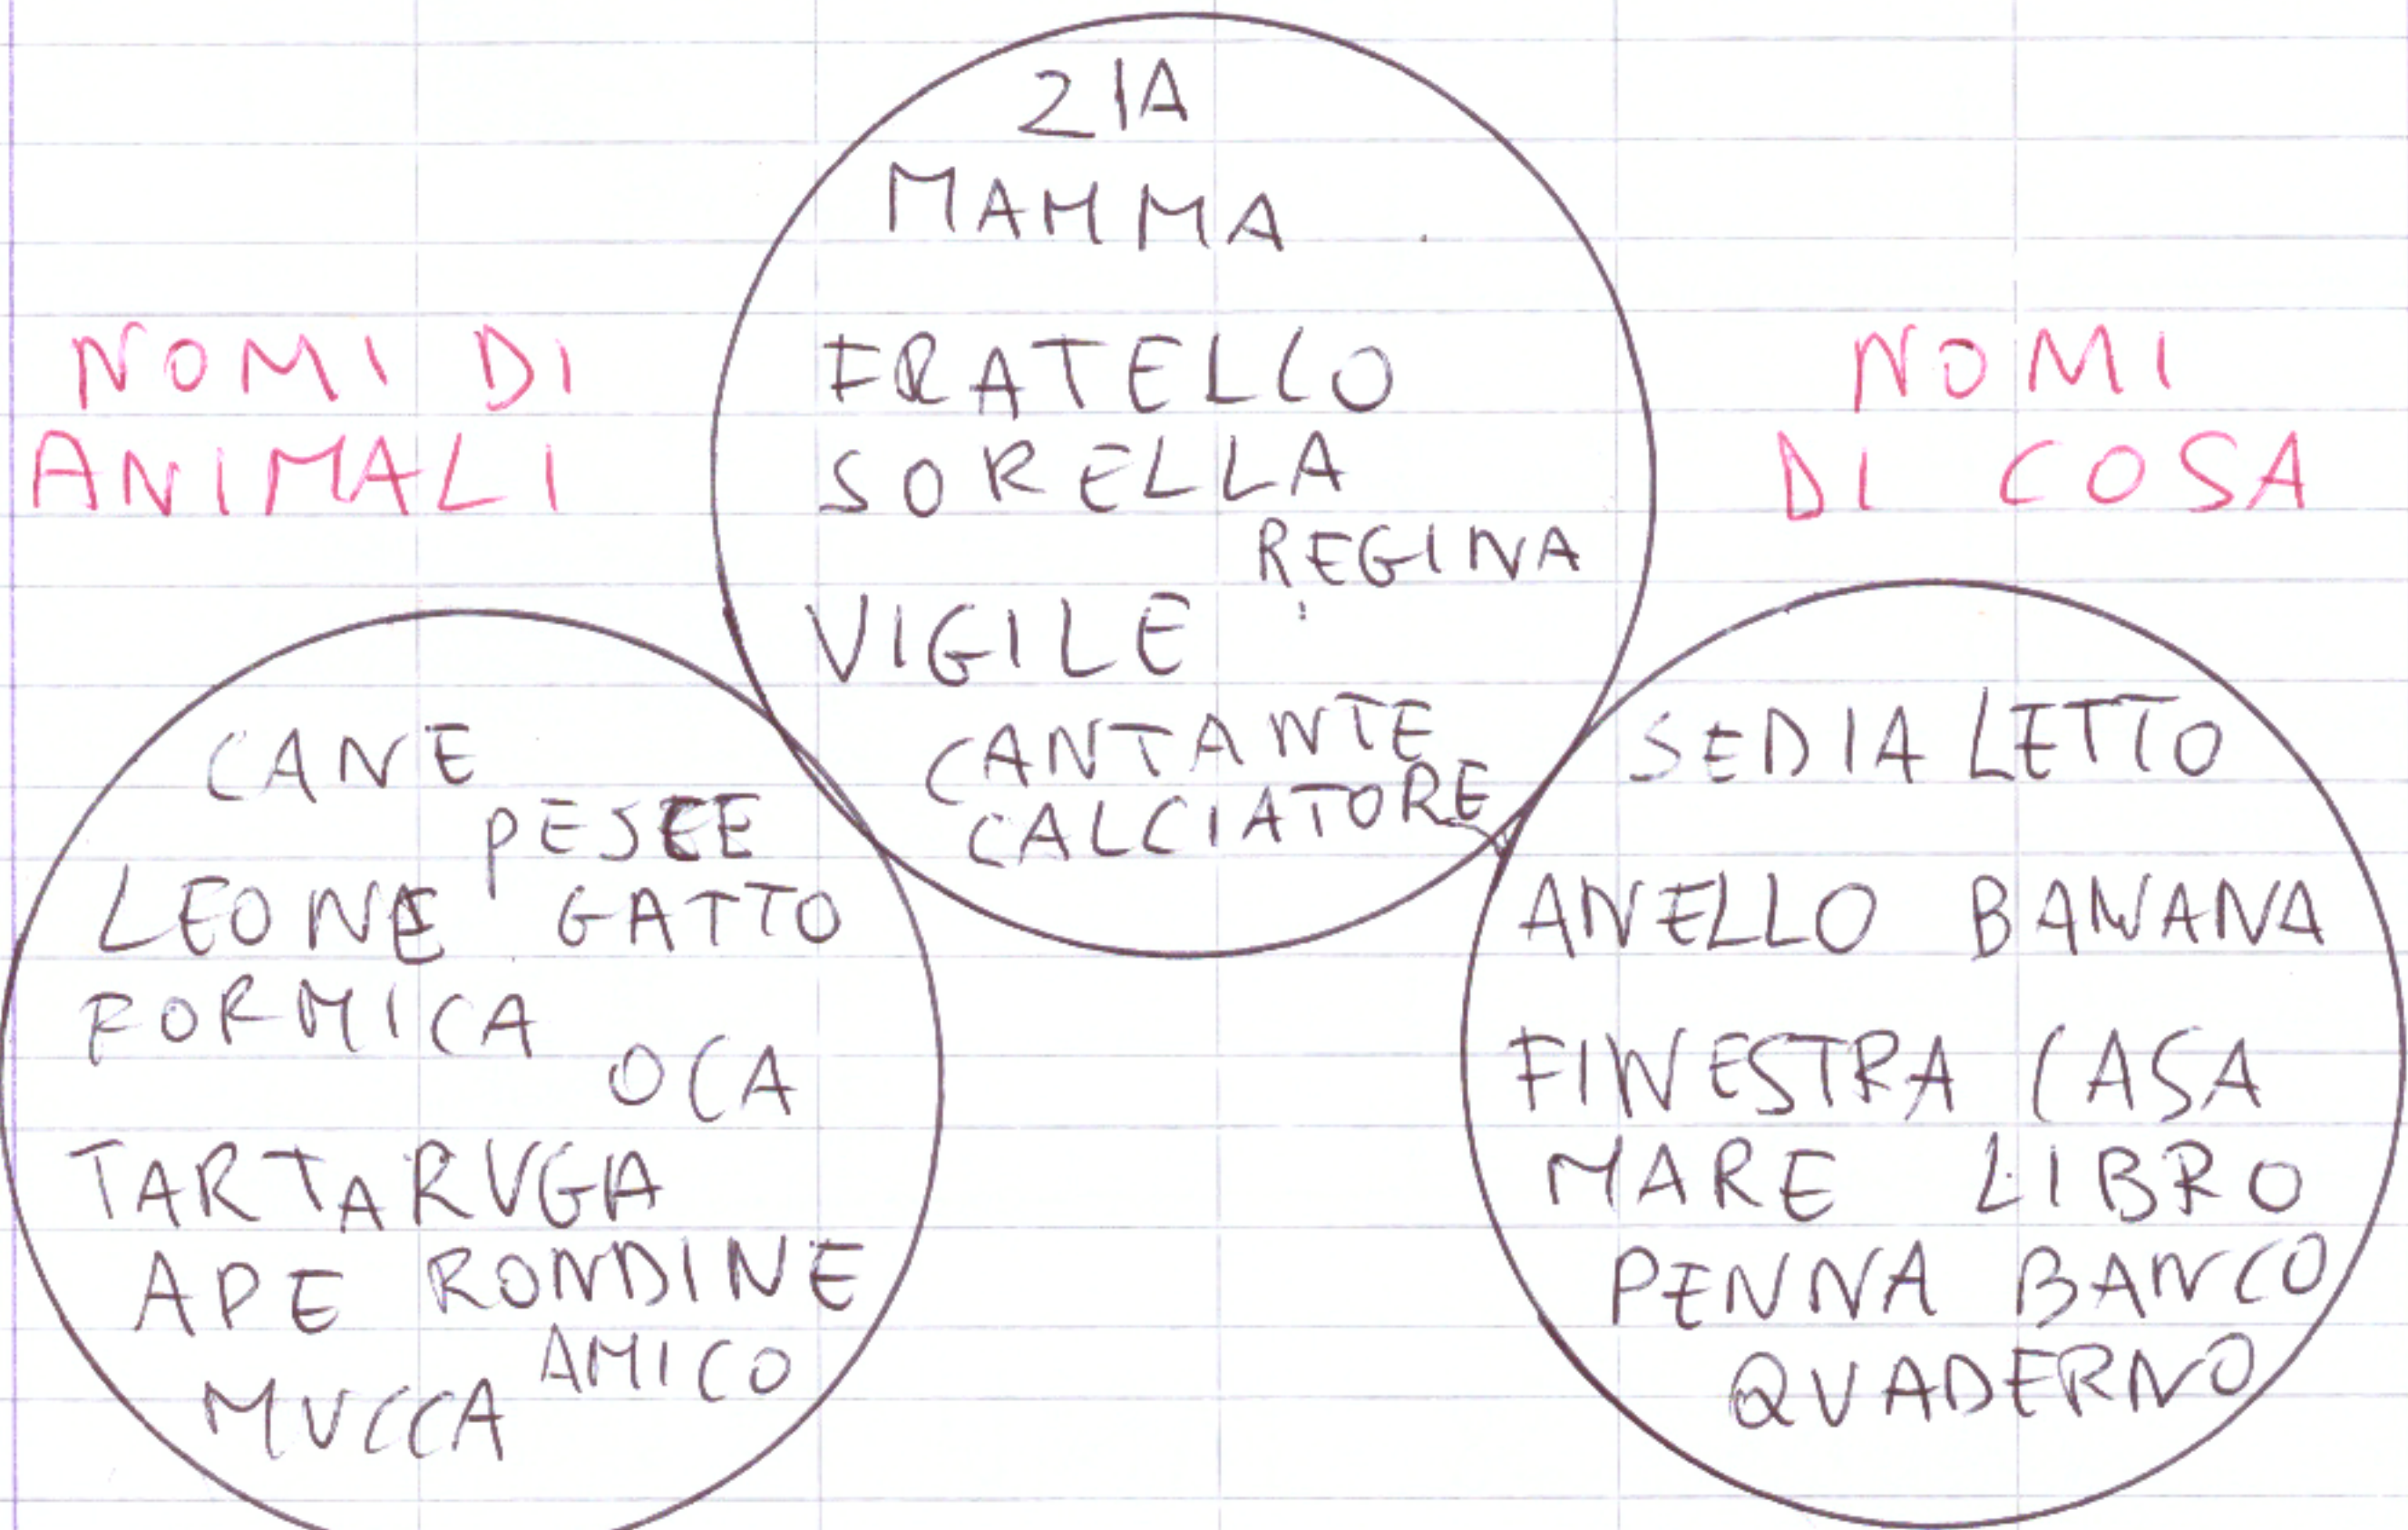 ZIA
MAMMA
FRATELLO
SORELLA
REGINA
VIGILE
CANTANTE
CALCIATORE
NOMI DI
ANIMALI
CANE
PESCE
LEONE GATTO
FORMICA
OCA
TARTARUGA
APE RONDINE
AMICO
MUCCA
NOMI
DI COSA
SEDIA LETTO
ANELLO BANANA
FINESTRA CASA
MARE LIBRO
PENNA BANCO
QUADERNO